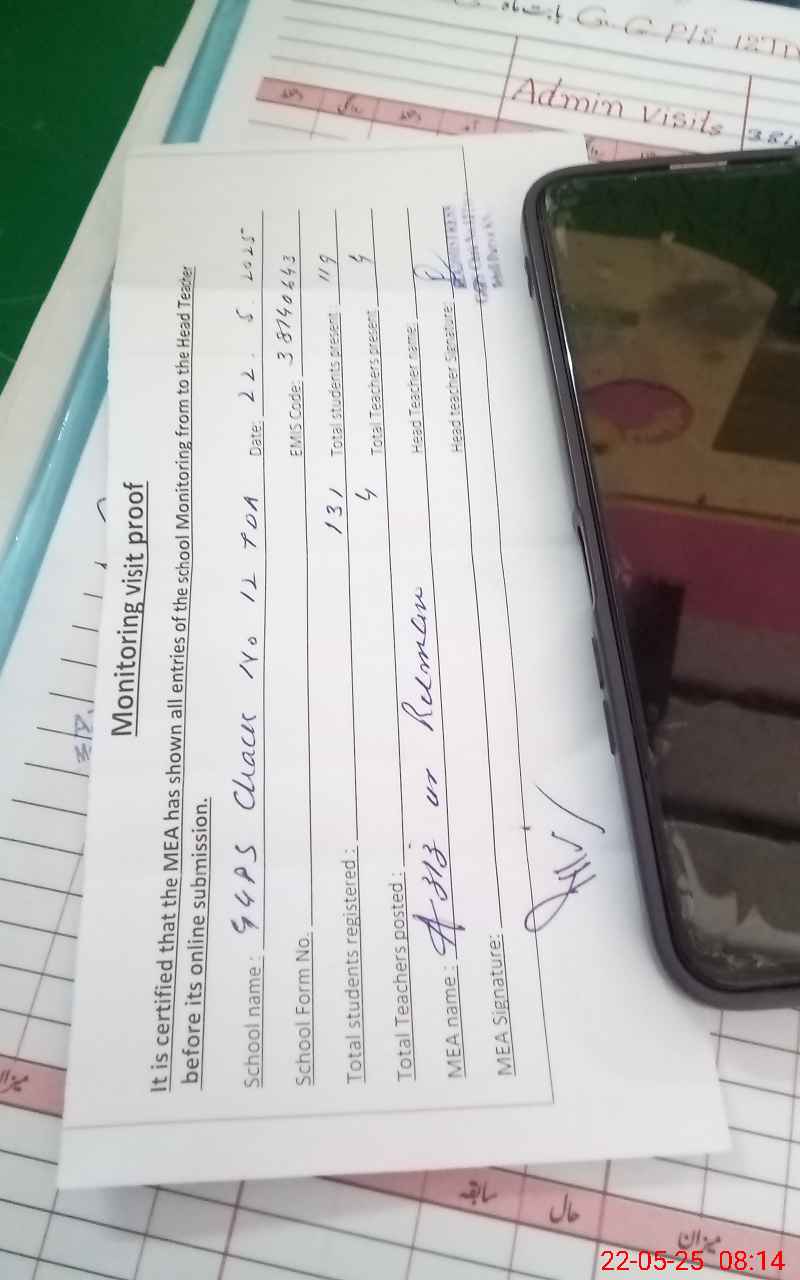 G G P/S 12TD
Admin Visits
Monitoring visit proof
It is certified that the MEA has shown all entries of the school Monitoring from to the Head Teacher
before its online submission.
School name: GGPS Chack No 12 TDA Date: 22. 5. 2025
School Form No. EMIS Code: 38740643
Total students registered: 131 Total students present: 119
Total Teachers posted: 4 Total Teachers present: 4
MEA name: Aziz ur Rehman Head Teacher name:
MEA Signature: Head teacher Signature:
میزان
سابقہ
حال
میزان
22-05-25 08:14